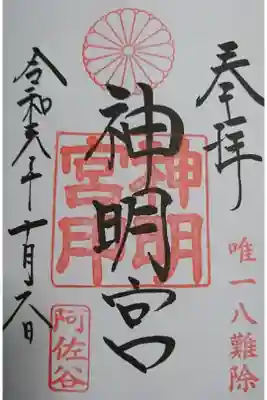 奉拝
唯一八難除
神明宮
神明
宮印
令和元年十月六日
阿佐谷